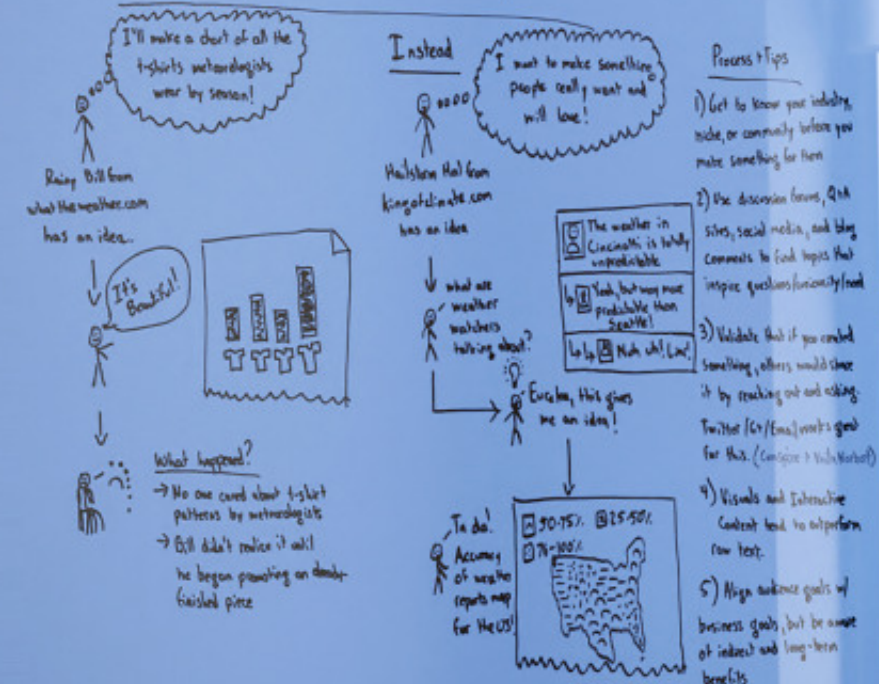 I'll make a chart of all the
t-shirts meteorologists
wear by season!
Rainy Bill from
whattheweather.com
has an idea..
It's
Beautiful!
What happened?
→ No one cared about t-shirt
patterns by meteorologists
→ Bill didn't realize it until
he began promoting an
finished piece
Instead
I want to make something
people really want and
will love!
Hailstorm Hal from
kingofclimate.com
has an idea
what are
weather
watchers
talking about?
The weather in
Cincinatti is totally
unpredictable
Yeah, but way more
predictable than
Seattle!
Nuh uh!
Eureka, this gives
me an idea!
Ta da!
Accuracy
of weather
reports map
for the US!
50-75% 25-50%
76-100%
Process + Tips
1) Get to know your industry,
niche, or community before you
make something for them
2) Use discussion forums, Q+A
sites, social media, and blog
comments to find topics that
inspire questions/curiosity/need
3) Validate that if you created
something, others would share
it by reaching out and asking.
Twitter/G+/Email works great
for this.
4) Visuals and Interactive
Content tend to outperform
raw text.
5) Align audience goals w/
business goals, but be aware
of indirect and long-term
benefits